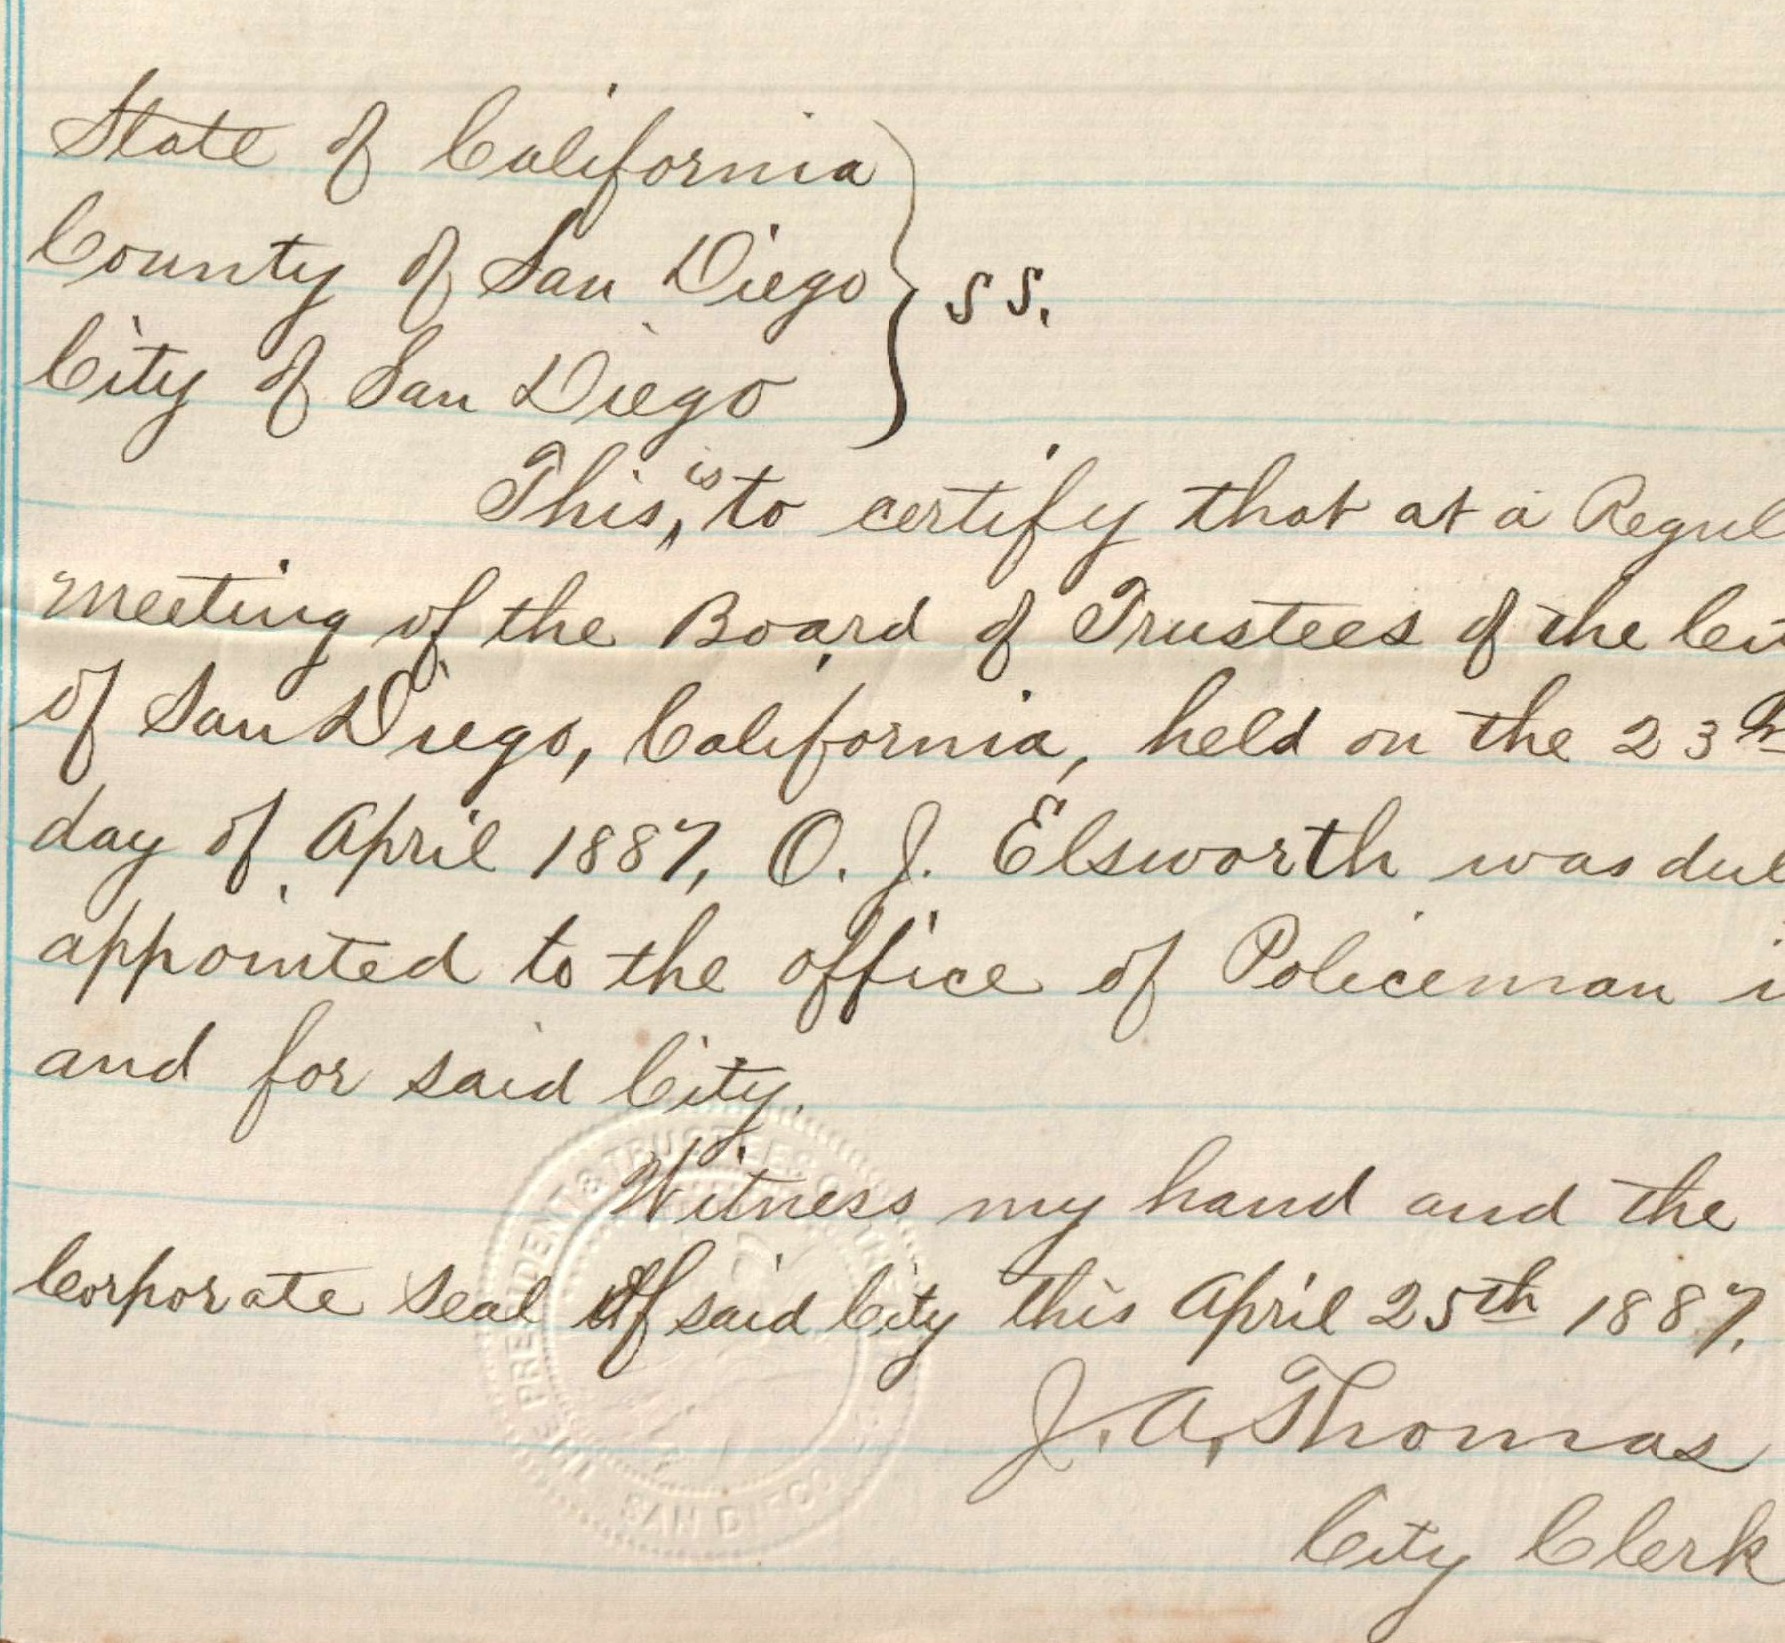 State of California
County of San Diego } SS.
City of San Diego
This, is to certify that at a Regul
meeting of the Board of Trustees of the Cit
of San Diego, California, held on the 23rd
day of April 1887, O. J. Elsworth was dul
appointed to the office of Policeman i
and for said City.
Witness my hand and the
Corporate Seal of said City this April 25th 1887.
J. A. Thomas
City Clerk
THE PRESIDENT & TRUSTEES OF THE
SAN DIEGO